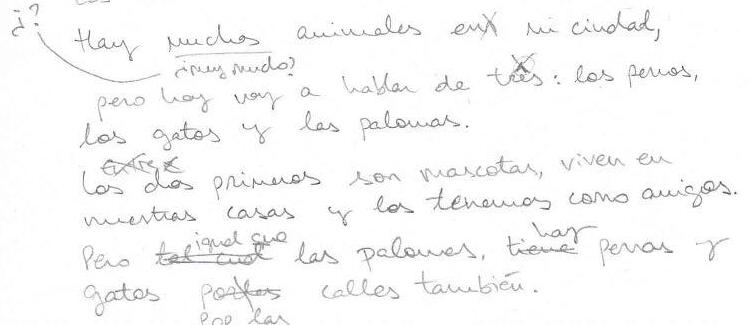 ¿?
Hay muchos animales en mi ciudad,
¿muy mudo?
pero hoy voy a hablar de tres: los perros,
los gatos y las palomas.
Entre
Los dos primeros son mascotas, viven en
nuestras casas y los tenemos como amigos.
igual que hay
Pero tal cual las palomas, tiene perros y
gatos por los calles también.
por las